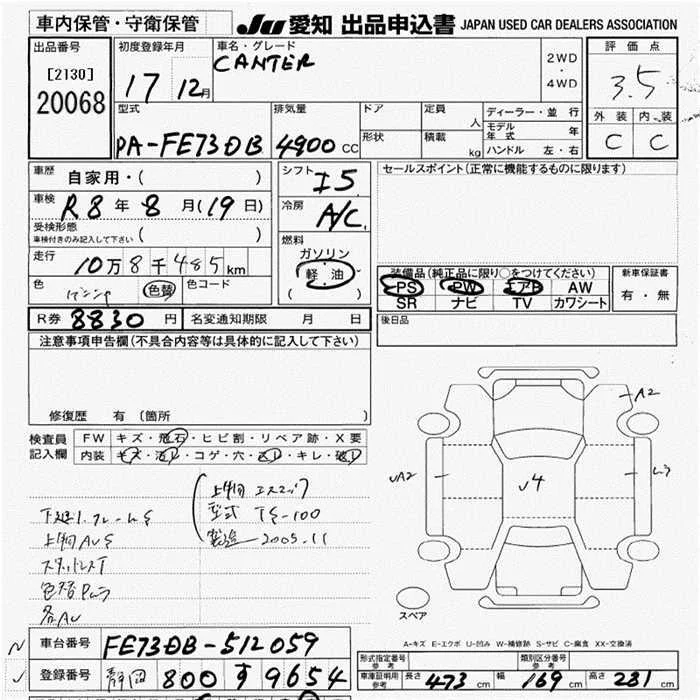 車内保管・守衛保管 JU 愛知 出品申込書 JAPAN USED CAR DEALERS ASSOCIATION
出品番号
[2130]
20068
初度登録年月
17 12月
車名・グレード
CANTER
2WD
・
4WD
評価点
3.5
外装 内装
C C
型式
PA-FE73DB
排気量
4900 cc
ドア
形状
定員 人
積載 kg
ディーラー・並行
モデル年式 年
ハンドル 左・右
車歴 自家用・( )
車検 R8年 8月(19日)
受検形態
車検付きのみ記入して下さい ( )
走行 10万8千485km
色 色替 色コード
シフト I5
冷房 A/C
燃料
ガソリン
・
軽油
( )
セールスポイント(正常に機能するものに限ります)
装備品(純正品に限り○をつけてください)
PS PW エアB AW
SR ナビ TV カワシート
新車保証書
有・無
R券 8830円 名変通知期限 月 日
後日品
注意事項申告欄(不具合内容等は具体的に記入して下さい)
修復歴 有(箇所
検査員
記入欄
FW キズ・飛石・ヒビ割・リペア跡・X要
内装 キズ・汚レ・コゲ・穴・スレ・キレ・破レ
上物
型式 TS-100
製造 2005.11
A2
UA2
U4
スペア
A-キズ E-エクボ U-凹み W-補修跡 S-サビ C-腐食 XX-交換済
車台番号 FE73DB-512059
登録番号 静岡 800 す 9654
形式指定番号
参考
類別区分番号
参考
車庫証明用
参考
長さ 473 cm 幅 169 cm 高さ 281 cm